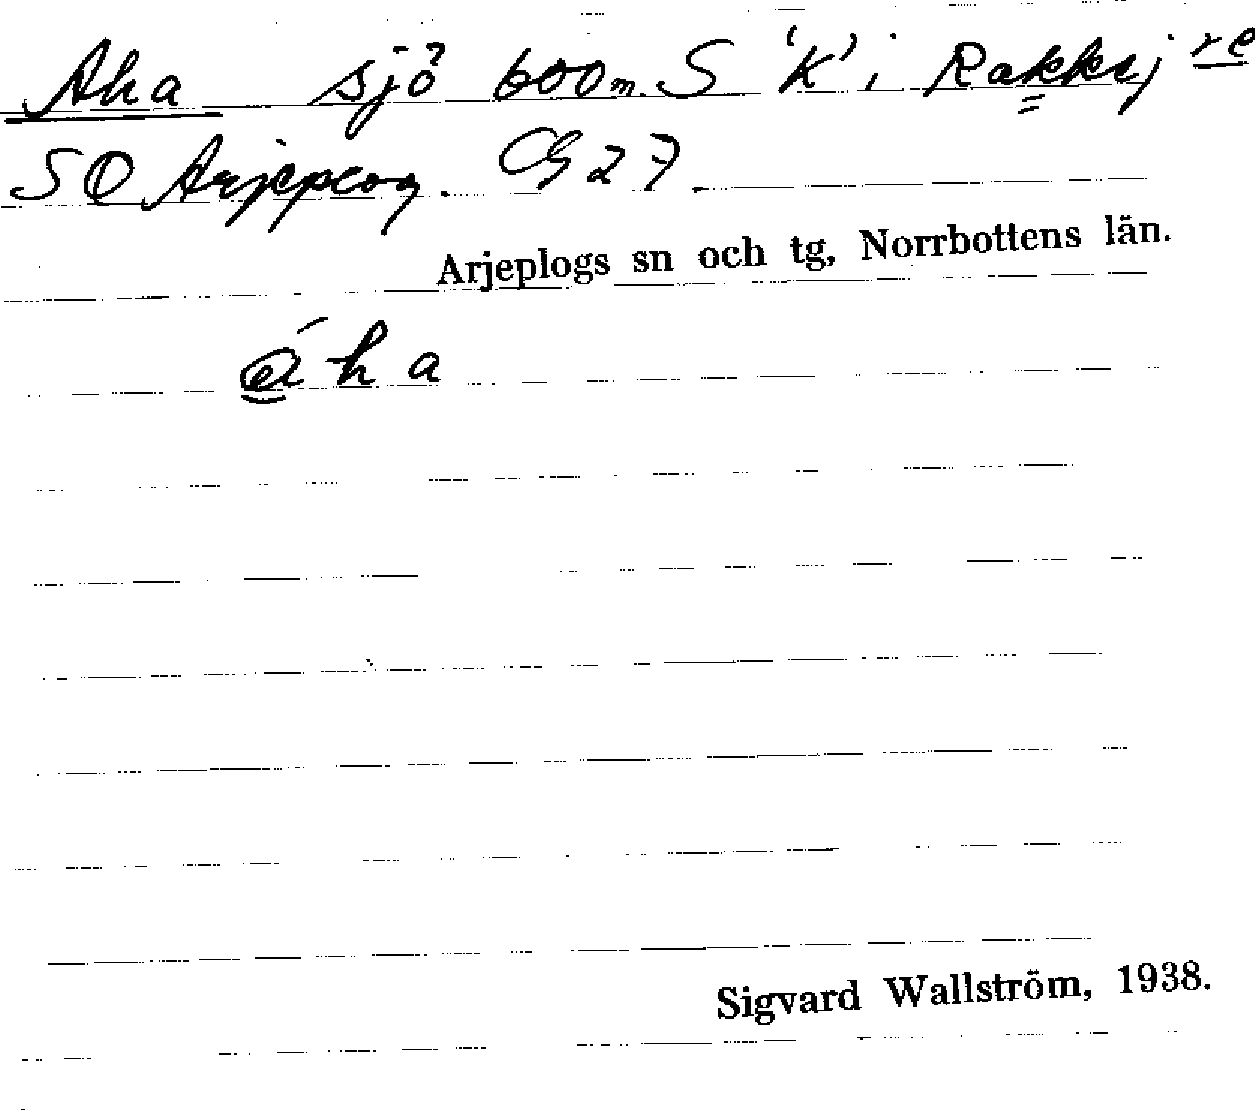 Aha sjö 600 m. S 'K' i Rakksj re
SO Arjeplog. G 27
Arjeplogs sn och tg, Norrbottens län.
áha
Sigvard Wallström, 1938.